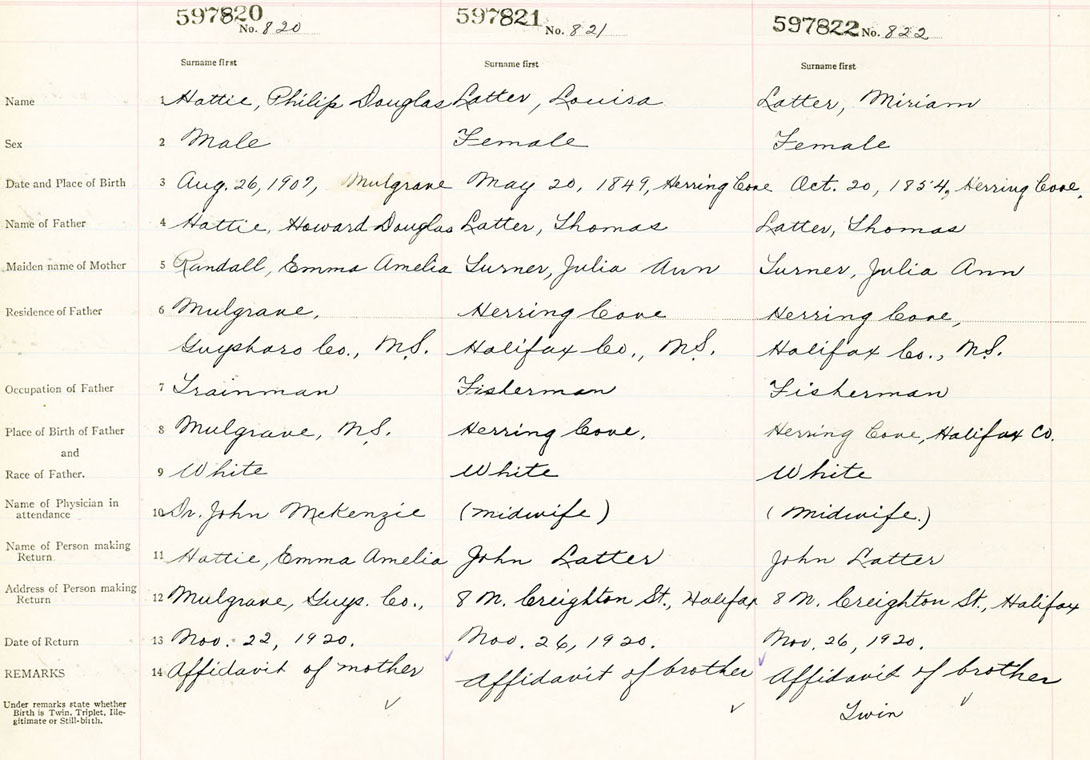 597820 597821 597822
No. 820 No. 821 No. 822
Surname first Surname first Surname first
Name 1 Hattie, Philip Douglas Latter, Louisa Latter, Miriam
Sex 2 Male Female Female
Date and Place of Birth 3 Aug. 26, 1907, Mulgrave May 20, 1849, Herring Cove Oct. 20, 1854, Herring Cove,
Name of Father 4 Hattie, Howard Douglas Latter, Thomas Latter, Thomas
Maiden name of Mother 5 Randall, Emma Amelia Turner, Julia Ann Turner, Julia Ann
Residence of Father 6 Mulgrave, Herring Cove Herring Cove,
Guysboro Co., N.S. Halifax Co., N.S. Halifax Co., N.S.
Occupation of Father 7 Trainman Fisherman Fisherman
Place of Birth of Father 8 Mulgrave, N.S. Herring Cove, Herring Cove, Halifax Co.
and
Race of Father. 9 White White White
Name of Physician in
attendance 10 Dr. John McKenzie (midwife) (Midwife.)
Name of Person making
Return 11 Hattie, Emma Amelia John Latter John Latter
Address of Person making
Return 12 Mulgrave, Guys. Co., 8 N. Creighton St., Halifax 8 N. Creighton St., Halifax
Date of Return 13 Nov. 22, 1920. Nov. 26, 1920. Nov. 26, 1920.
REMARKS 14 Affidavit of mother Affidavit of brother Affidavit of brother
Under remarks state whether
Birth is Twin, Triplet, Ille-
gitimate or Still-birth. Twin